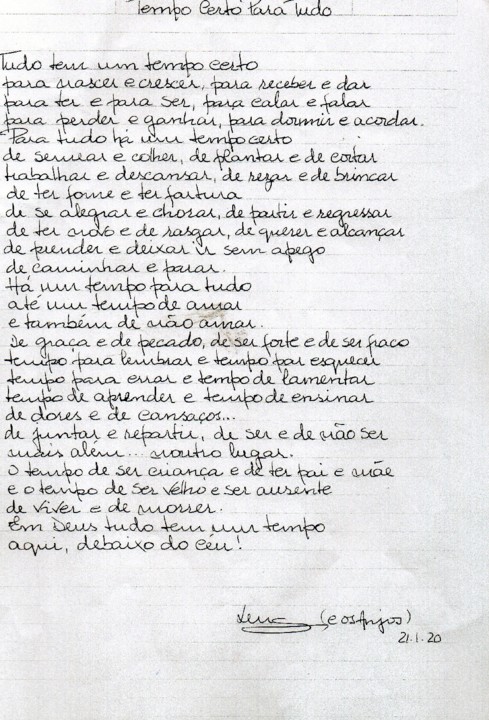 Tempo Certo Para Tudo
Tudo tem um tempo certo
para nascer e crescer, para receber e dar
para ter e para ser, para calar e falar
para perder e ganhar, para dormir e acordar.
Para tudo há um tempo certo
de semear e colher, de plantar e de cortar
trabalhar e descansar, de rezar e de brincar
de ter fome e ter fartura
de se alegrar e chorar, de partir e regressar
de ter e de rasgar, de querer e alcançar
de prender e deixar ir sem apego
de caminhar e parar.
Há um tempo para tudo
até um tempo de amar
e também de não amar.
De graça e de pecado, de ser forte e de ser fraco
tempo para lembrar e tempo par esquecer
tempo para errar e tempo de lamentar
tempo de aprender e tempo de ensinar
de dores e de cansaços...
de juntar e repartir, de ser e de não ser
mais além... noutro lugar.
O tempo de ser criança e de ter pai e mãe
e o tempo de ser velho e ser ausente
de viver e de morrer.
Em Deus tudo tem um tempo
aqui, debaixo do céu!
(e os Anjos)
21.1.20